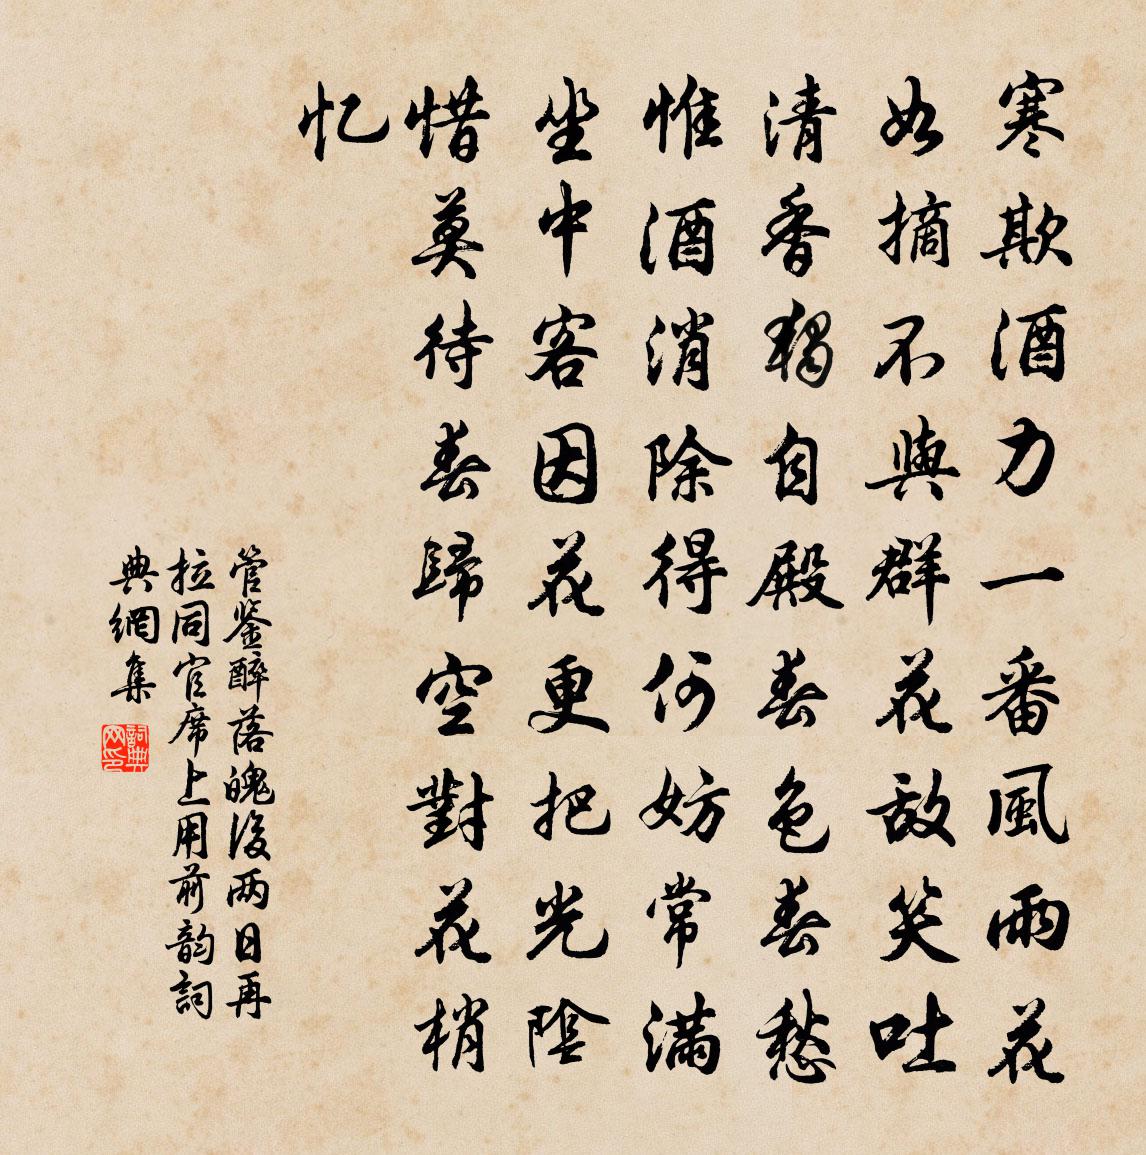 寒欺酒力一番風雨花
如摘不與群花敌笑吐
清香獨自殿春色春愁
惟酒消除得何妨常滿
坐中客因花更把光陰
惜莫待春歸空對花梢
忆
管鉴醉落魄後两日再
拉同官席上用前韵詞
典網集
詞典
网印